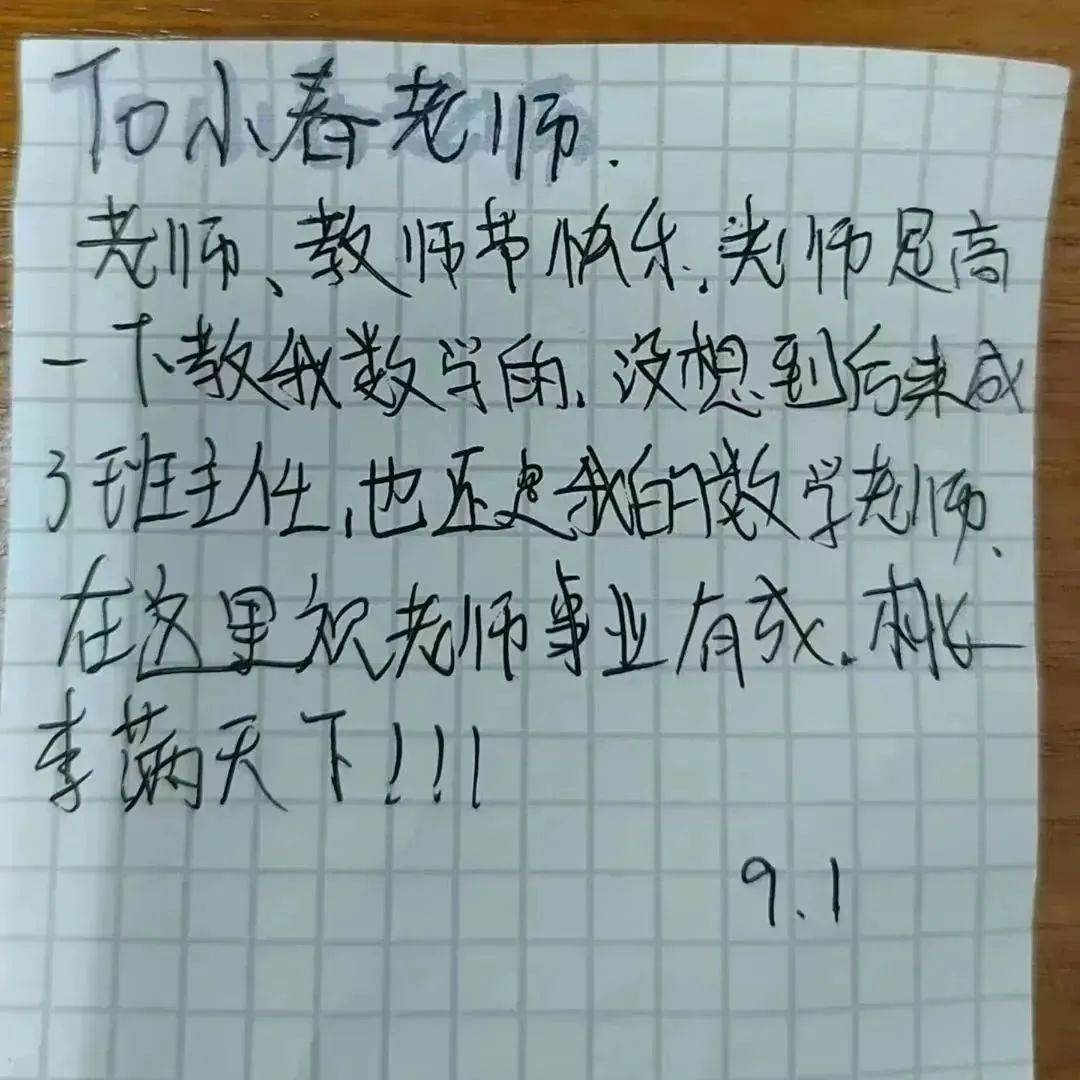 To 小春老师.
老师、教师节快乐.老师是高
一下教我数学的.没想到后来成
了班主任,也还是我的数学老师.
在这里祝老师事业有成.桃
李满天下!!!
9.1